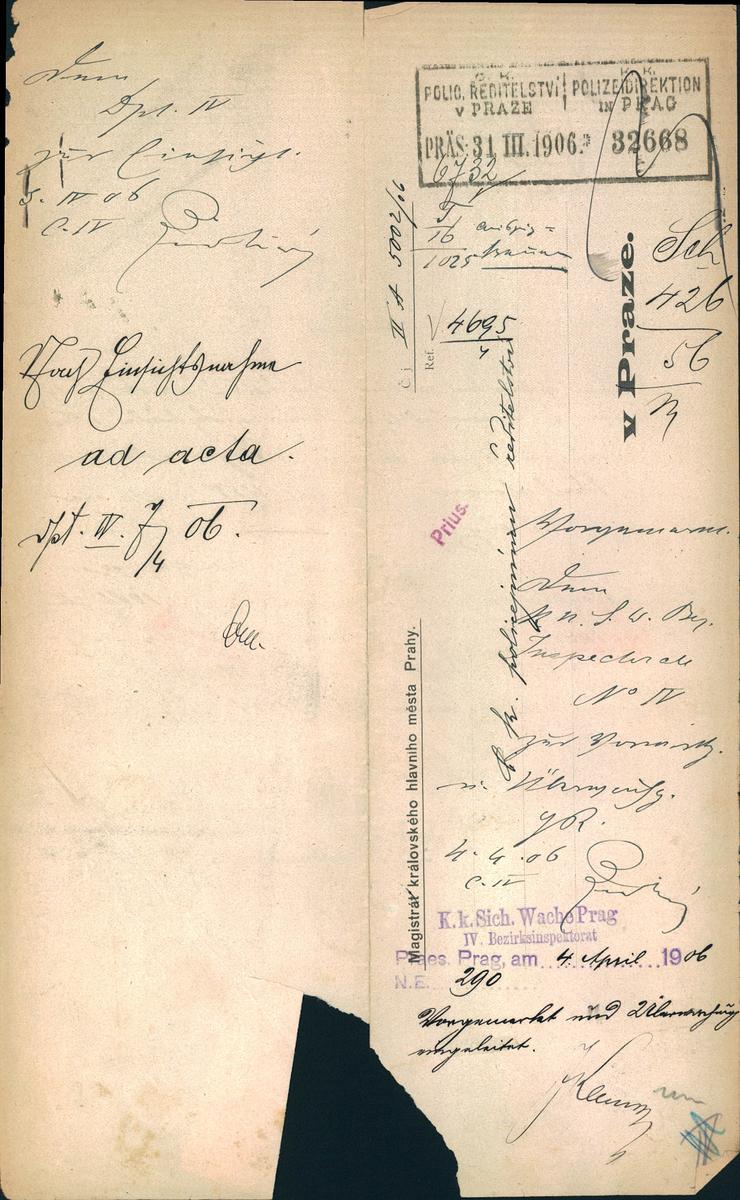 Dem
Dpt. IV
zur Einsicht.
5. IV 06
C. IV
Nach Einsichtsnahme
ad acta.
Dpt. IV. 7/4 06.
C. K. K. K.
POLIC. ŘEDITELSTVÍ POLIZEIDIREKTION
V PRAZE IN PRAG
PRÄS: 31 III. 1906. 32668
6732
16
1025
Č. j. II A 5002/06
Ref.
4695
4
v Praze.
Sch
426
56
c. k. policejnímu ředitelství
Prius.
Magistrát královského hlavního města Prahy.
Vorgemerkt.
Dem
k. k. S. W. Bez.
Inspectorate
No IV
zur Vormerkg.
u. Überwachg.
4. 4. 06
C. IV
K.k. Sich. Wache Prag
IV. Bezirksinspektorat
Praes. Prag, am 4. April 1906
N.E. 290
Vorgemerkt und Überwachung
eingeleitet.